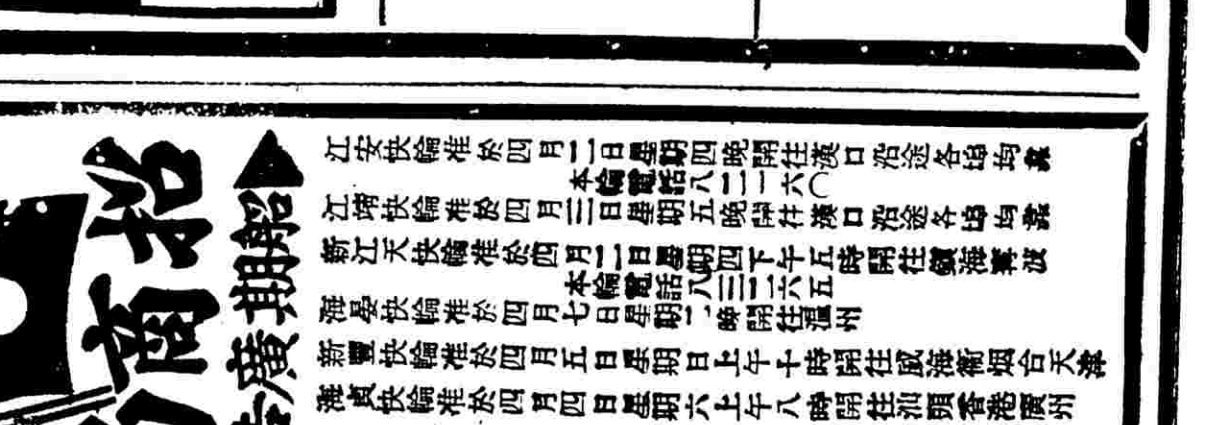 招商
船期廣告
江安快輪准於四月二日星期四晚開往漢口沿途各埠均靠
本輪電話八二一六〇
江靖快輪准於四月三日星期五晚開往漢口沿途各埠均靠
新江天快輪准於四月二日星期四下午五時開往鎮海寧波
本輪電話八三二六五
海晏快輪准於四月七日星期二晚開往溫州
新豐快輪准於四月五日星期日上午十時開往威海衛烟台天津
海貞快輪准於四月四日星期六上午八時開往汕頭香港廣州